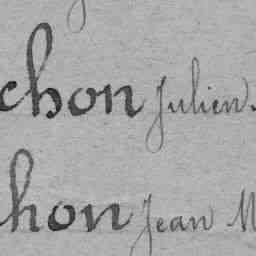 chon Julien.
hon Jean M